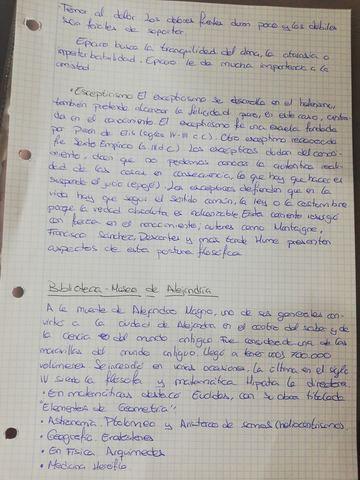 Temor al dolor los dolores fuertes duran poco y los débiles
son fáciles de soportar.
Epicuro busca la tranquilidad del alma, la ataraxia o
imperturbabilidad. Epicuro le da mucha importancia a la
amistad
• Escepticismo El escepticismo se desarrolla en el helenismo,
también pretende alcanzar la felicidad pero, en este caso, centra-
da en el conocimiento El escepticismo fue una escuela fundada
por Pirrón de Elis (siglos IV-III a.C). Otro escéptico reconocido
fue Sexto Empírico (s.II d.C). Los escépticos dudan del conoci-
miento, dicen que no podemos conocer la auténtica reali-
dad de las cosas en consecuencia, lo que hay que hacer es
suspender el juicio (epojé). Los escépticos defienden que en la
vida hay que seguir el sentido común, la ley o la costumbre
porque la verdad absoluta es inalcanzable Esta corriente resurgió
con fuerza en el renacimiento, autores como Montaigne,
Francisco Sánchez, Descartes y más tarde Hume presentan
aspectos de esta postura filosófica.
Biblioteca - Museo de Alejandría
A la muerte de Alejandro Magno, uno de sus generales con-
virtió a la ciudad de Alejandría en el centro del saber y de
la ciencia del mundo antiguo Fue considerada una de las
maravillas del mundo antiguo llegó a tener unos 700.000
volúmenes Se incendió en varias ocasiones, la última en el siglo
IV siendo la filósofa y matemática Hipatia la directora.
• En matemáticas destacó Euclides, con su obra titulada
"Elementos de Geometría".
• Astronomía. Ptolomeo y Aristarco de Samos (heliocentrismo).
• Geografía. Eratóstenes
• En Física Arquímedes
• Medicina Herófilo